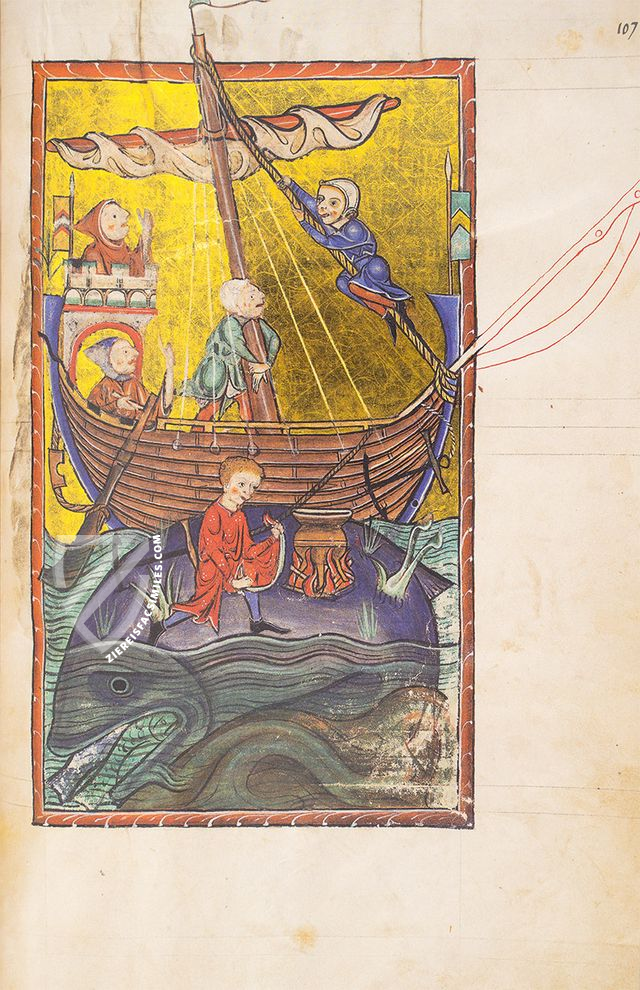 107
ZIEREISFACSIMILES.COM